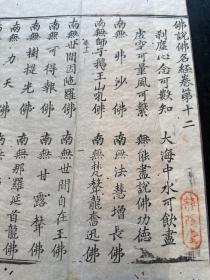 佛說佛名經卷第十二
剎塵心念可數知 大海中水可飲盡
虛空可量風可繫 無能盡說佛功德
南無弗沙佛 南無法慧增長佛
南無師子鵝王山吼佛 南無梵聲龍奮迅佛
南無世間因陀羅佛 南無世間自在王佛
南無可得報佛 南無甘露聲佛
南無樹提光佛 南無那羅延首龍佛
南無力天佛